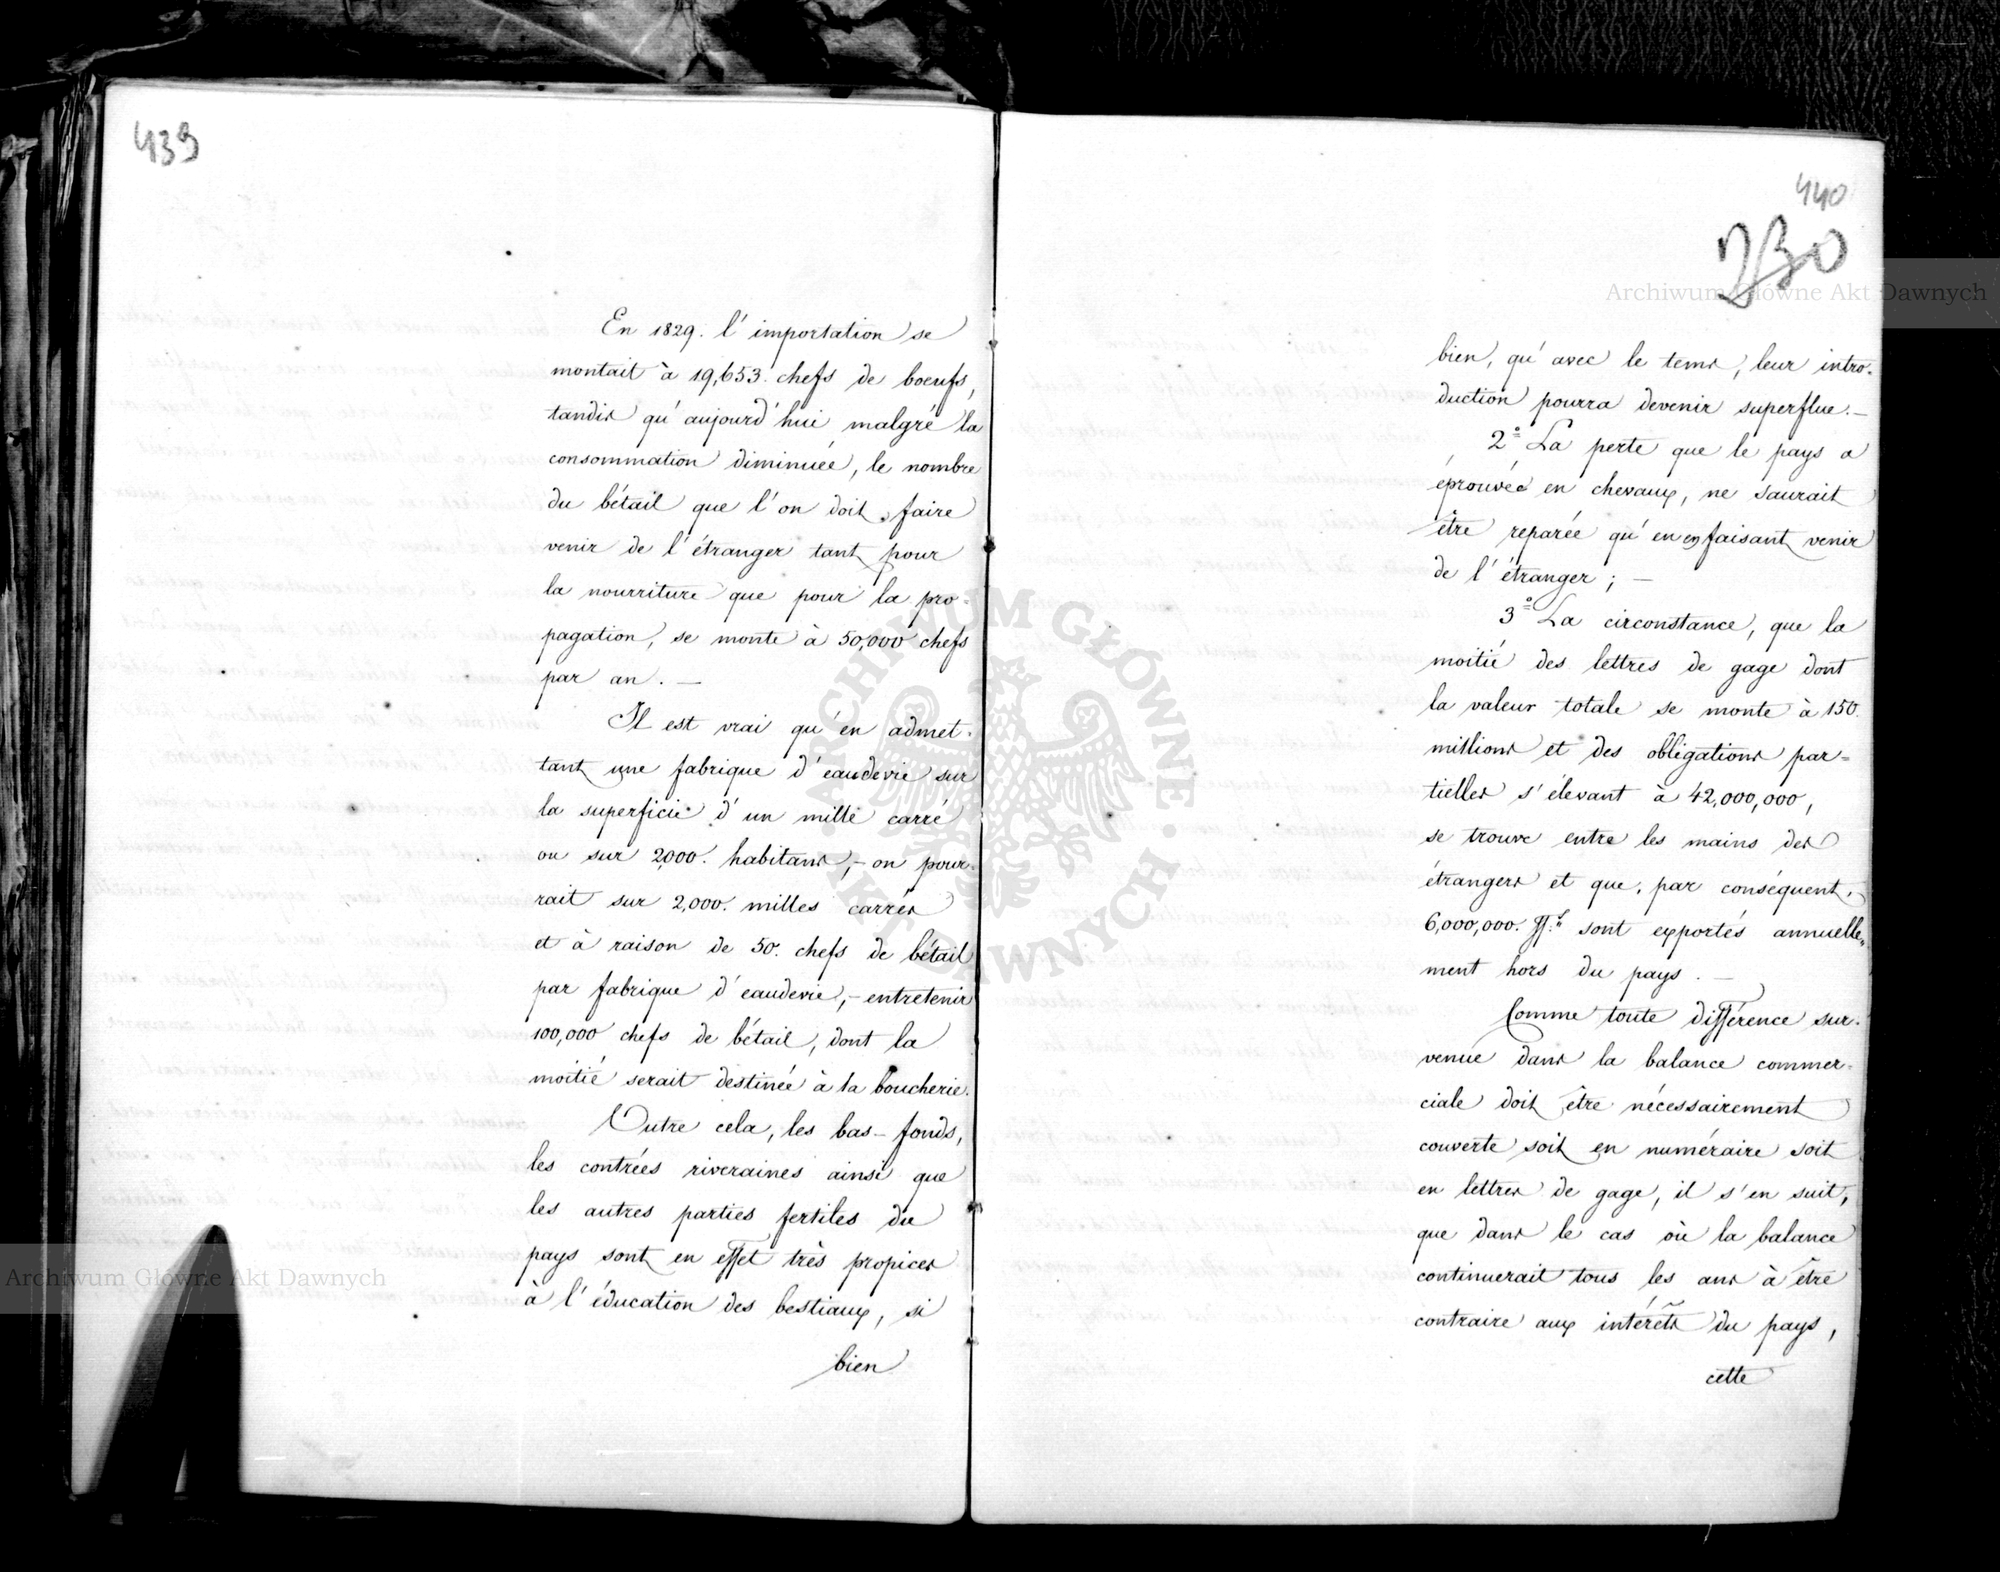 439
En 1829. l'importation se
montait à 19,653. chefs de boeufs,
tandis qu'aujourd'hui malgré la
consommation diminuée, le nombre
du bétail que l'on doit faire
venir de l'étranger tant pour
la nourriture que pour la pro-
pagation, se monte à 50,000 chefs
par an. —
Il est vrai qu'en admet-
tant une fabrique d'eaudevie sur
la superficie d'un mille carré
ou sur 2,000. habitans, – on pour-
rait sur 2,000. milles carrés
et à raison de 50. chefs de bétail
par fabrique d'eaudevie, – entretenir
100,000 chefs de bétail, dont la
moitié serait destinée à la boucherie.
Outre cela, les bas-fonds,
les contrées riveraines ainsi que
les autres parties fertiles du
pays sont en effet très propices
à l'éducation des bestiaux, si
bien
440
230
bien, qu'avec le tems, leur intro-
duction pourra devenir superflue. —
2° La perte que le pays a
éprouvée en chevaux, ne saurait
être reparée qu'en en faisant venir
de l'étranger; —
3° La circonstance, que la
moitié des lettres de gage dont
la valeur totale se monte à 150.
millions et des obligations par-
tielles s'élevant à 42,000,000,
se trouve entre les mains des
étrangers et que, par conséquent,
6,000,000. sont exportés annuelle-
ment hors du pays. —
Comme toute différence sur-
venue dans la balance commer-
ciale doit être nécessairement
couverte soit en numéraire soit
en lettres de gage, il s'en suit,
que dans le cas où la balance
continuerait tous les ans à être
contraire aux intérêts du pays,
cette
Archiwum Główne Akt Dawnych
Archiwum Główne Akt Dawnych
ARCHIWUM GŁÓWNE
AKT DAWNYCH